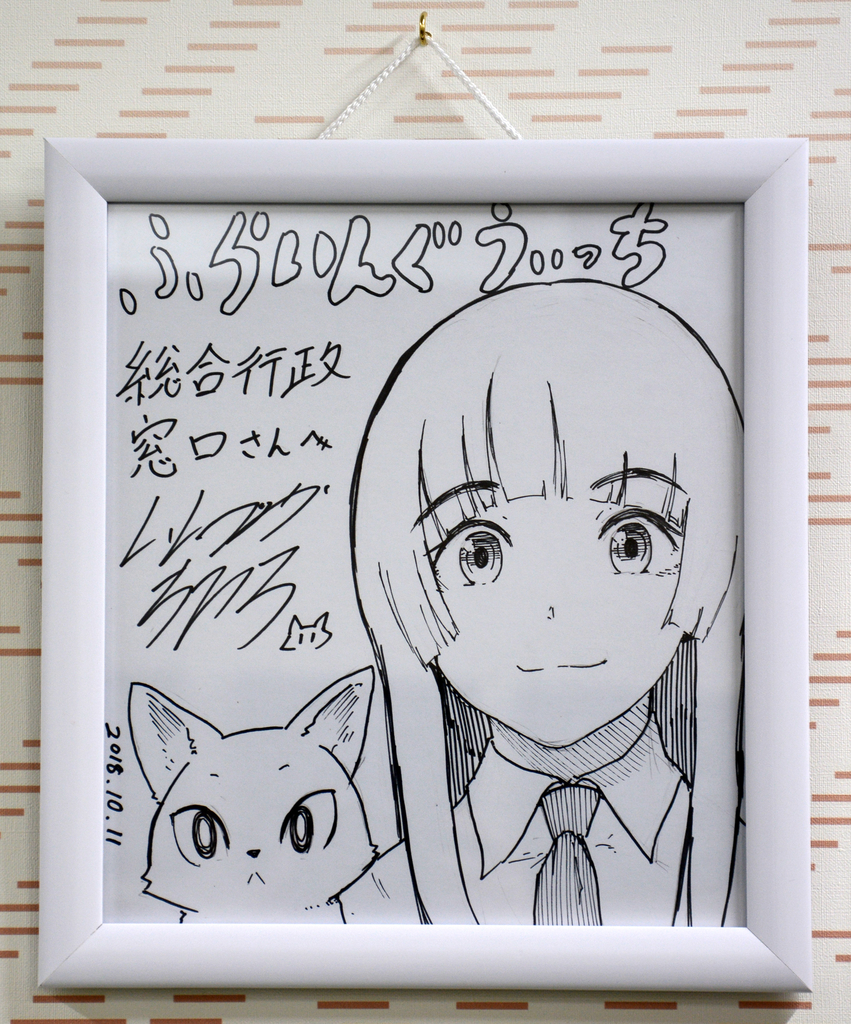 ふらいんぐうぃっち
総合行政
窓口さんへ
2018.10.11